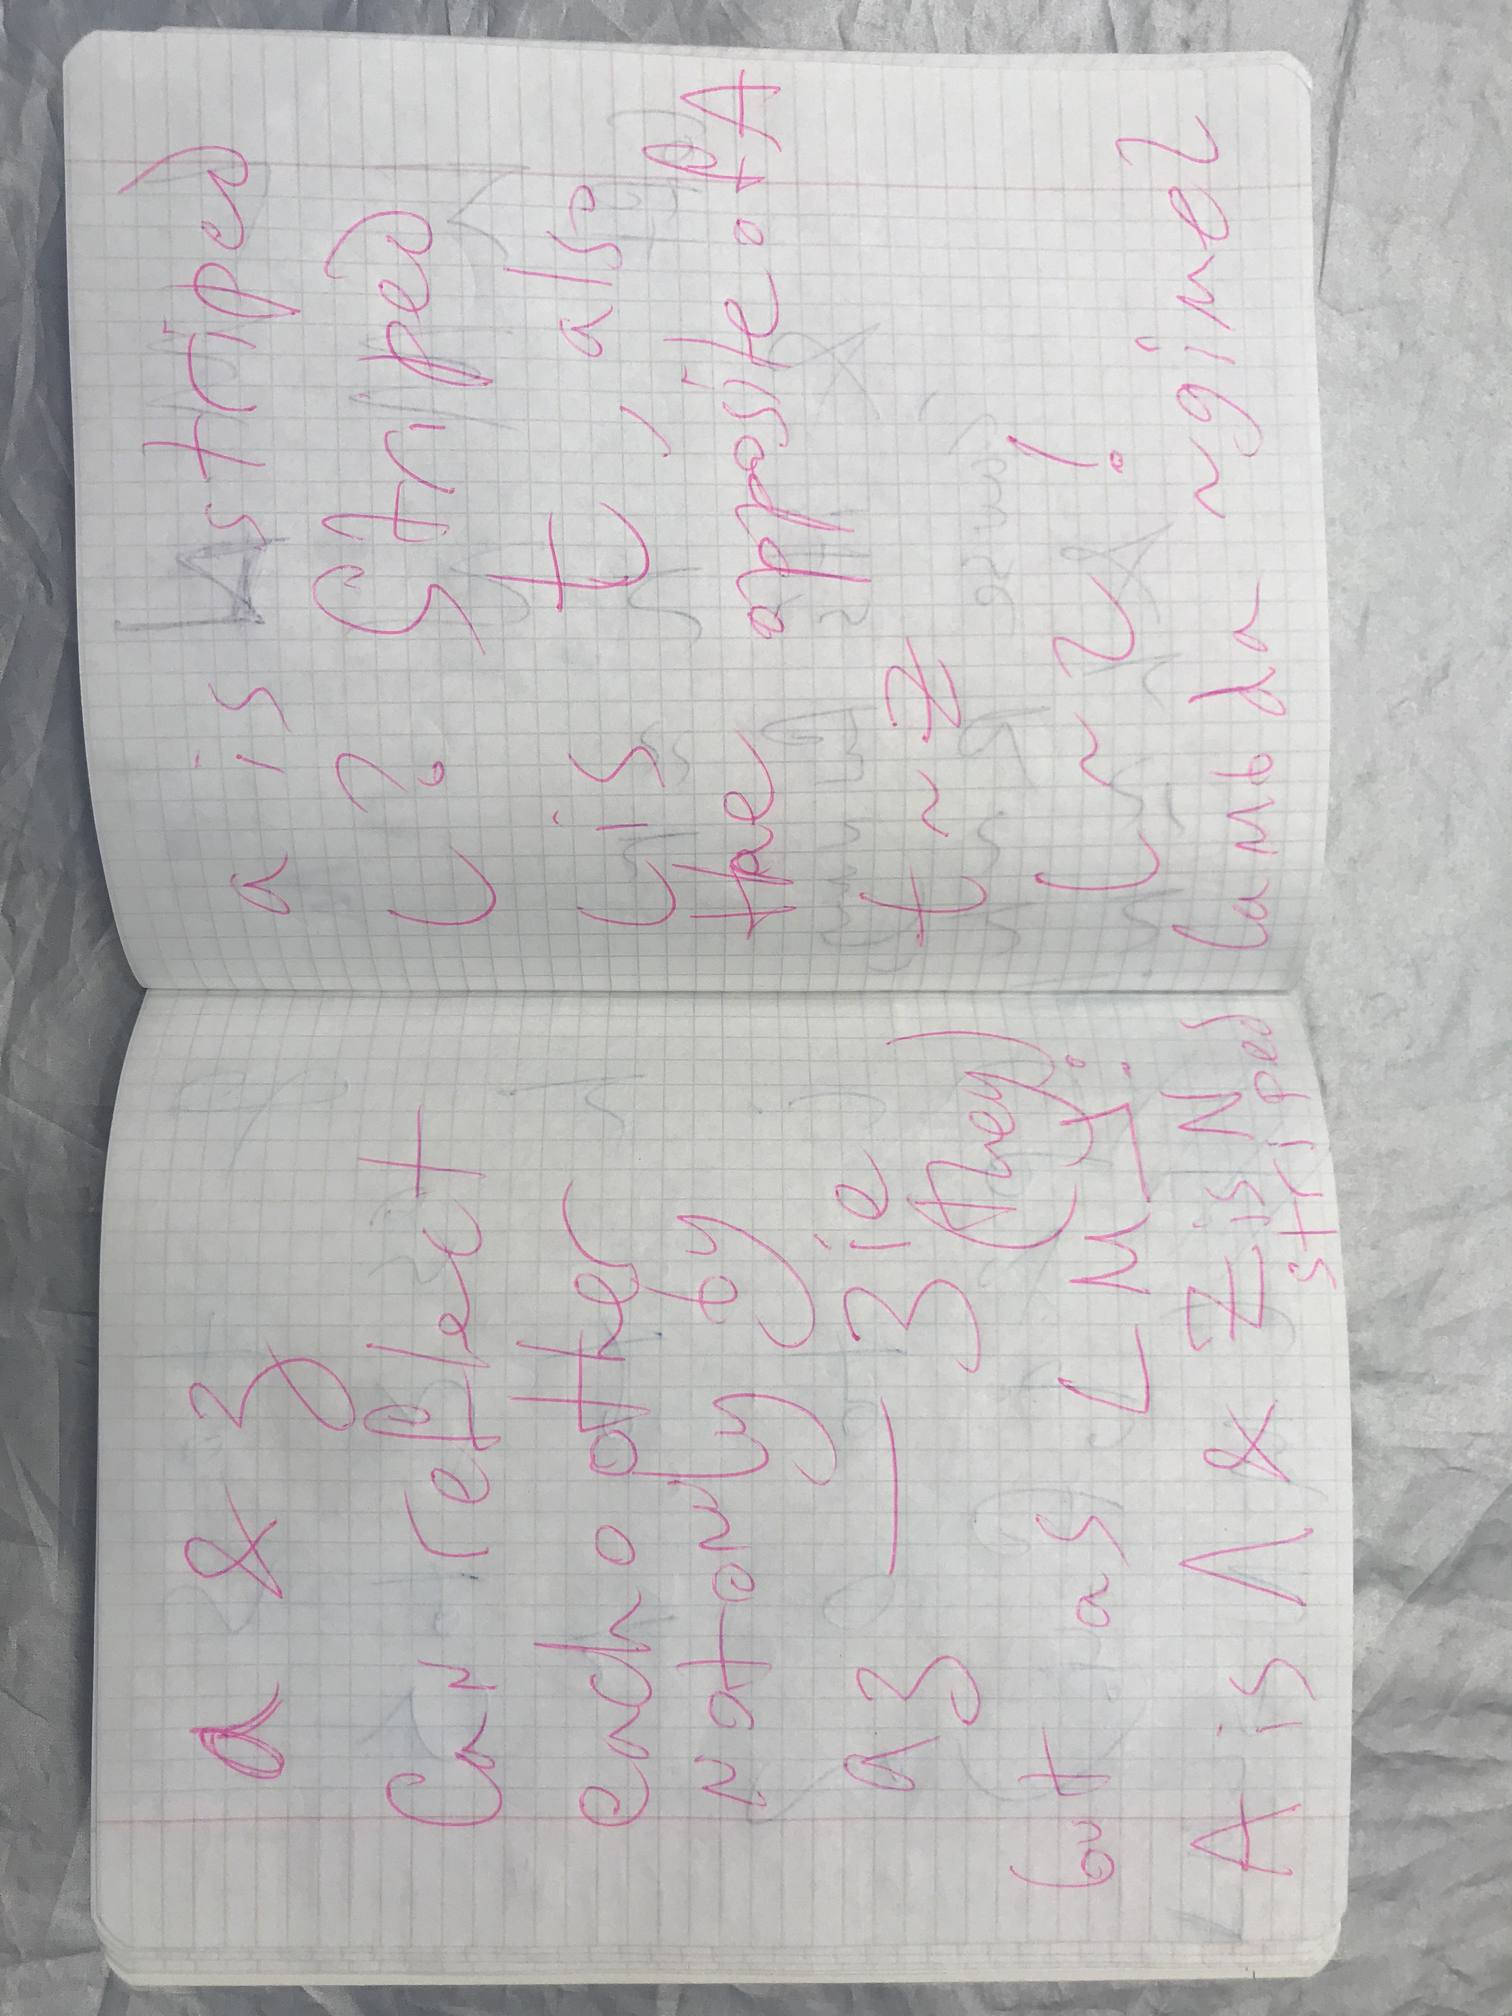 a & з
can reflect
each other
not only by
аз — зie
(they)
but as [И] (У):
A is Λ & Z is N
striped
a is striped
L? Striped
L is t, also
the opposite of A
t ~ Z
L ~ 2!
lambda ~ gimel